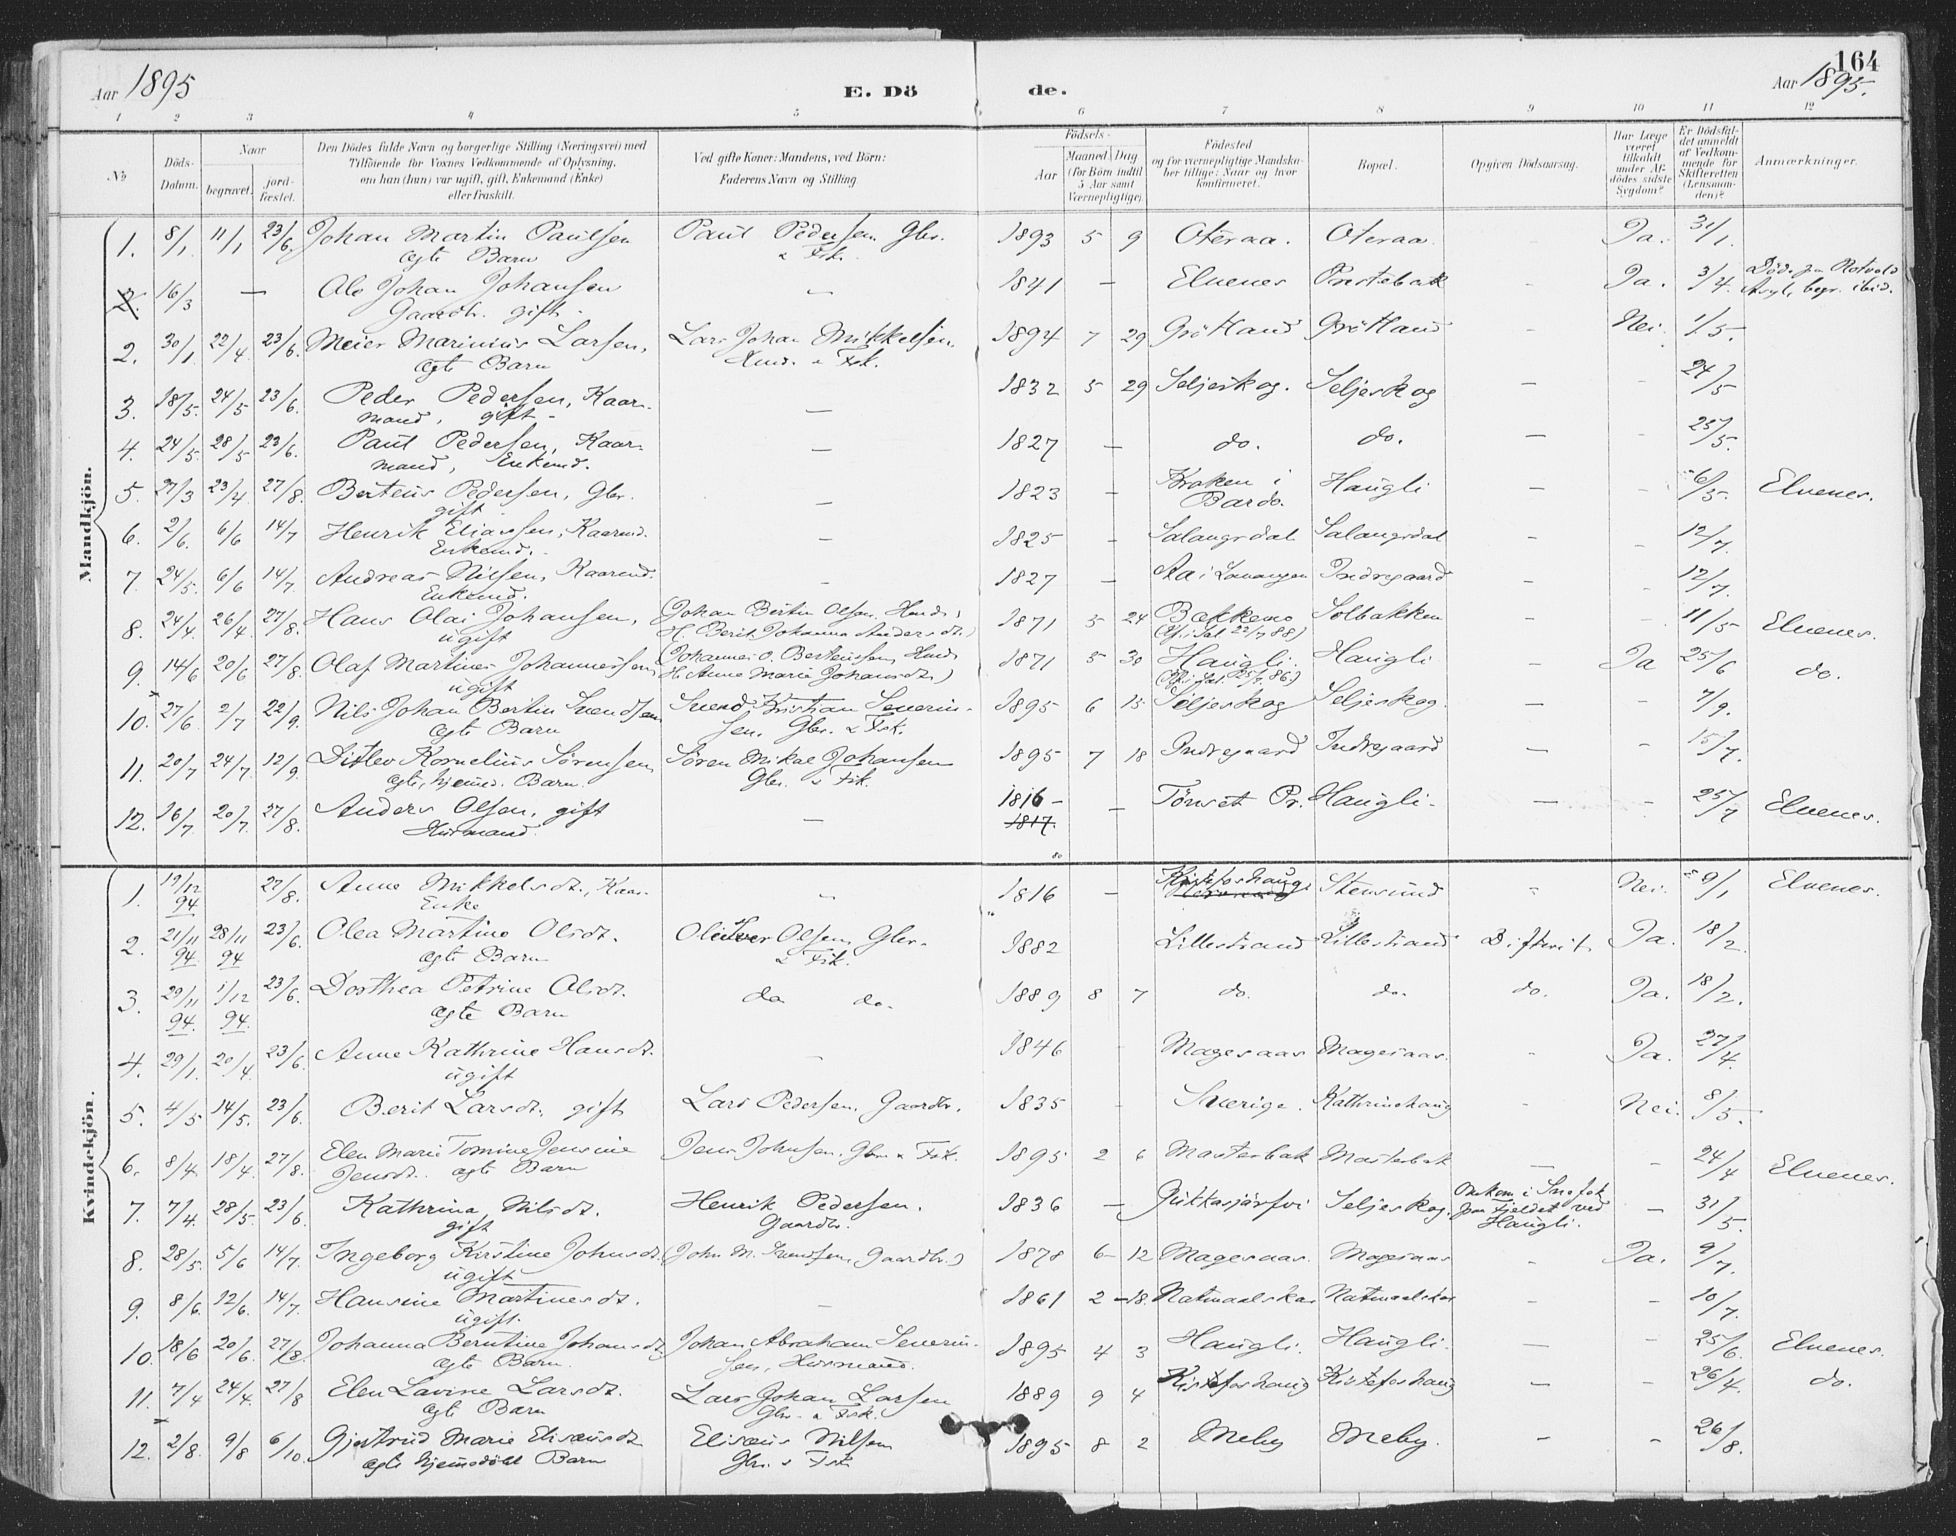 164
Aar 1895
E. Dö de.
Aar 1895.
1 2 3 4 5 6 7 8 9 10 11 12
No
Döds-Datum.
Naar
begravet.
jord-fæstet.
Den Dödes fulde Navn og borgerlige Stilling (Næringsvei) med
Tilföiende for Voxnes Vedkommende af Oplysning,
om han (hun) var ugift, gift, Enkemand (Enke)
eller fraskilt.
Ved gifte Koner: Mandens, ved Börn:
Faderens Navn og Stilling
Födsels-
Aar
Maaned Dag
(for Börn indtil
5 Aar samt
Værnepligtige).
Födested
og for værnepligtige Mandska-
ber tillige: Naar og hvor
konfirmeret.
Bopæl.
Opgiven Dödsaarsag.
Har Læge
været
tilkaldt
under Af-
dödes sidste
Sygdom?
Er Dödsfal-
det anmeldt
af Vedkom-
mende for
Skifteretten
(Lensman-
den)?
Anmærkninger.
Mandkjön.
1. 8/1 11/1 23/6 Johan Martin Paulsen Paul Pedersen Gbr. 1893 5 9 Oteraa. Oteraa Ja. 31/1.
ægte Barn & Fsk.
2. 16/3 — Ole Johan Johansen — 1841 — Elvenes Præstebak Ja. 3/4. Döde paa Rotvold
Gaardbr. gift - Asyl, begr. ibid.
2. 30/1. 22/4. 23/6. Meier Marinius Larsen, Lars Johan Mikkelsen, 1894 7 29 Gröttland Gröttland - Nei. 1/5.
ægte Barn Husm. & Fsk.
3. 18/5. 24/5 23/6. Peder Pedersen, Kaar- — 1832 5 29 Seljeskog. Seljeskog — 24/5
mand, gift -
4. 24/5. 28/5 23/6. Paul Pedersen, Kaar- — 1827 — do. do. — 25/5.
mand, Enkemd.
5. 27/3 23/4. 27/8. Berteus Pedersen, Gbr. — 1823 — Kroken i Haugli 6/5. Elvenes.
gift - Bardo.
6. 2/6. 6/6 14/7 Henrik Eliassen, Kaarmd. — 1825 — Salangsdal Salangsdal - 12/7.
Enkemd. -
7. 24/5. 6/6 14/7. Andreas Nilsen, Kaarmd. — 1827 — Aa i Lavangen Indregaard - 12/7.
Enkemd.
8. 24/4. 26/4. 27/8. Hans Olai Johansen, (Johan Bertin Olsen, Husm. 1871 5 24 Bakkemo Solbakken - 11/5 Elvenes.
ugift H. Berit Johanna Andersdt.)
9. 14/6 20/6 27/8. Olaf Martines Johannessen (Johannes O. Berteussen, Husm. 1871 5 30 Haugli. Haugli - Ja 25/6 do.
ugift H. Anne Marie Johansdt.)
10. 27/6. 2/7 22/9. Nils Johan Bertin Svendsen Svend Kristian Severin- 1895 6 15 Seljeskog Seljeskog. — 7/9.
ægte Barn sen. Gbr. & Fsk.
11. 20/7 24/7. 12/9. Ditlev Kornelius Sörensen Sören Mikal Johansen 1895 7 18 Indregaard Indregaard — 15/7.
ægte, hjemmed. Barn. Gbr. & Fsk.
12. 16/7 20/7. 27/8. Anders Olsen, gift — 1816 - — Tönset Pr. Haugli. — 25/7 Elvenes.
Husmand. 1817.
Kvindekjön.
1. 19/12 94 27/8. Anne Mikkelsdt., Kaar- 1816 — Kistefoshaug Stensund Nei. 9/1 Elvenes.
Enke
2. 21/11 94. 28/11 94 23/6. Olea Martine Olsdt. Ole Iver Olsen, Gbr. 1882 Lillestrand Lillestrand Difterit Ja. 18/2.
ægte Barn & Fsk.
3. 29/11 94. 1/12 94. 23/6. Dorthea Petrine Olsdt. do do. 1889 8 7 do. do. do. Ja. 18/2.
ægte Barn
4. 29/1. 20/4. 23/6. Anne Kathrine Hansdt. - 1846 Magesaas Magesaas. - Ja. 27/4.
ugift
5. 4/5 14/5. 23/6. Berit Larsdt. gift Lars Pedersen, Gaardbr. 1835 - Sverige. Kathrinehaug - Nei. 8/5.
6. 8/4 18/4. 27/8. Elen Marie Tomine Jensine Jens Johnsen, Gbr. & Fsk. 1895 2 6 Masterbak Masterbak — 24/4 Elvenes.
Jensdt. ægte Barn
7. 7/4. 28/5. 23/6. Kathrina Nilsdt. Henrik Pedersen. 1836 — Jukkasjärfvi Seljeskog. Omkom i Snefok — 31/5.
gift Gaardbr. paa Fjeldet ved
Haugli.
8. 28/5. 5/6 14/7. Ingeborg Kirstine Johnsdt. (John M. Svendsen, Gaardbr.) 1878 6 12 Magesaas. Magesaas - Ja. 9/7.
ugift
9. 8/6. 12/6. 14/7. Hansine Martinesdt. — 1861 2 18. - 10/7.
ugift.
10. 18/6 20/6. 27/8. Johanna Berntine Johansdt. Johan Abraham Severin- 1895 4 3 Haugli. Haugli. — 25/6. Elvenes.
ægte Barn. sen, Husmand.
11. 7/4 24/4. 27/8 Elen Lavine Larsdt. Lars Johan Larsen 1889 9 4 Kistefoshaug Kistefoshaug — 26/4. do.
ægte Barn Gbr. & Fsk.
12. 2/8. 9/8 6/10. Gjertrud Marie Elisæusdt. Elisæus Nilsen 1895 8 2 Meby Meby. - 26/8.
ægte hjemmedöbt Barn Gbr. & Fsk.